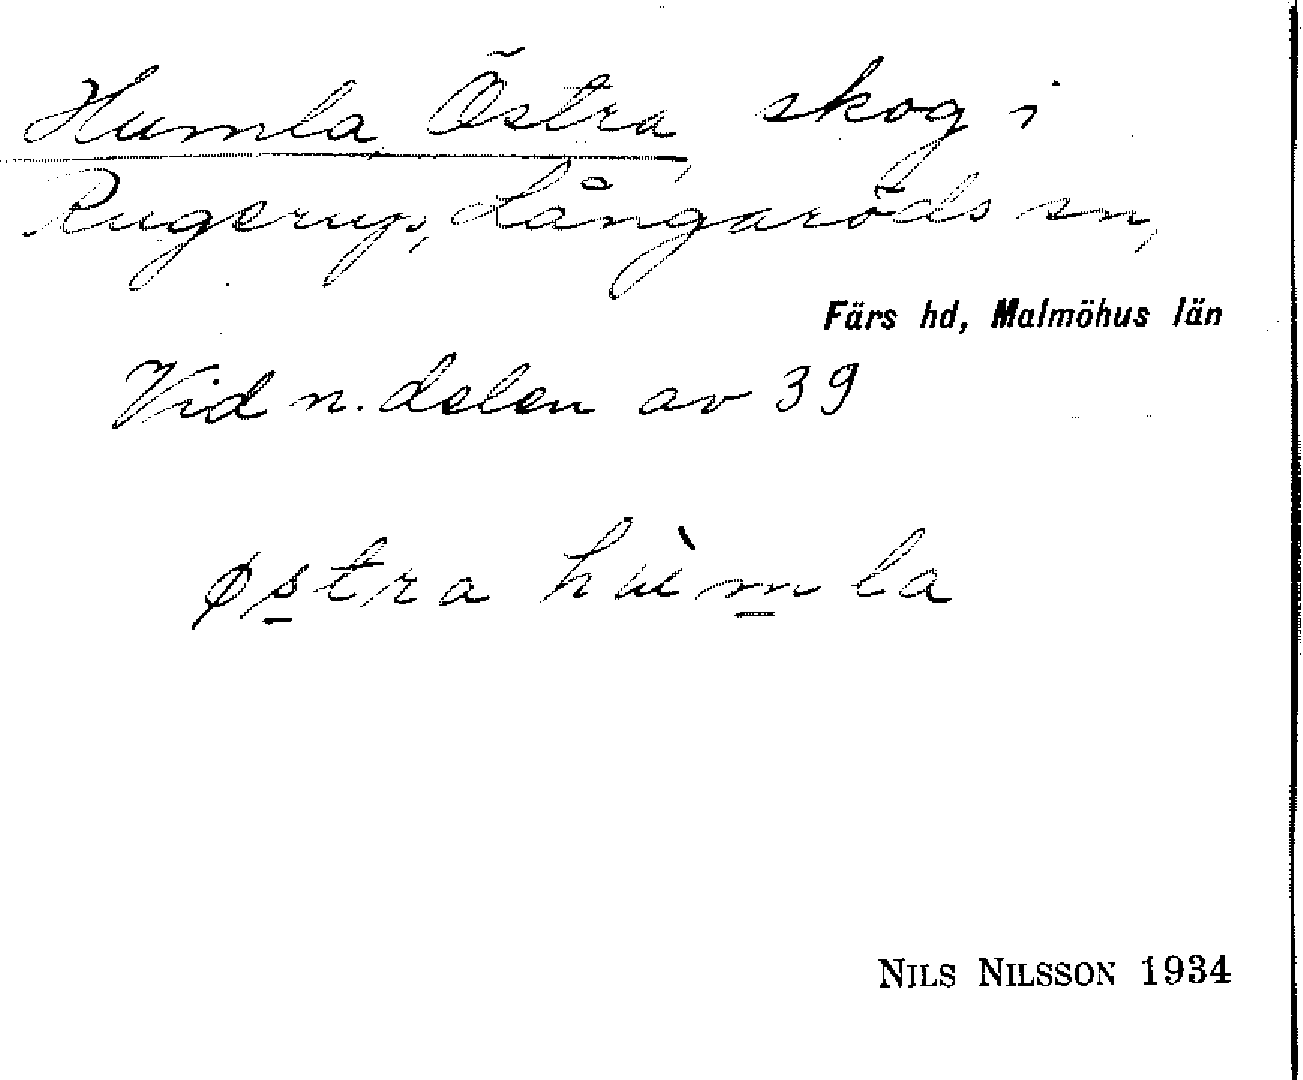 Humla, Östra, skog i
Rugerup, Långaröds sn,
Färs hd, Malmöhus län
Vid n. delen av 39
østra hùmla
NILS NILSSON 1934